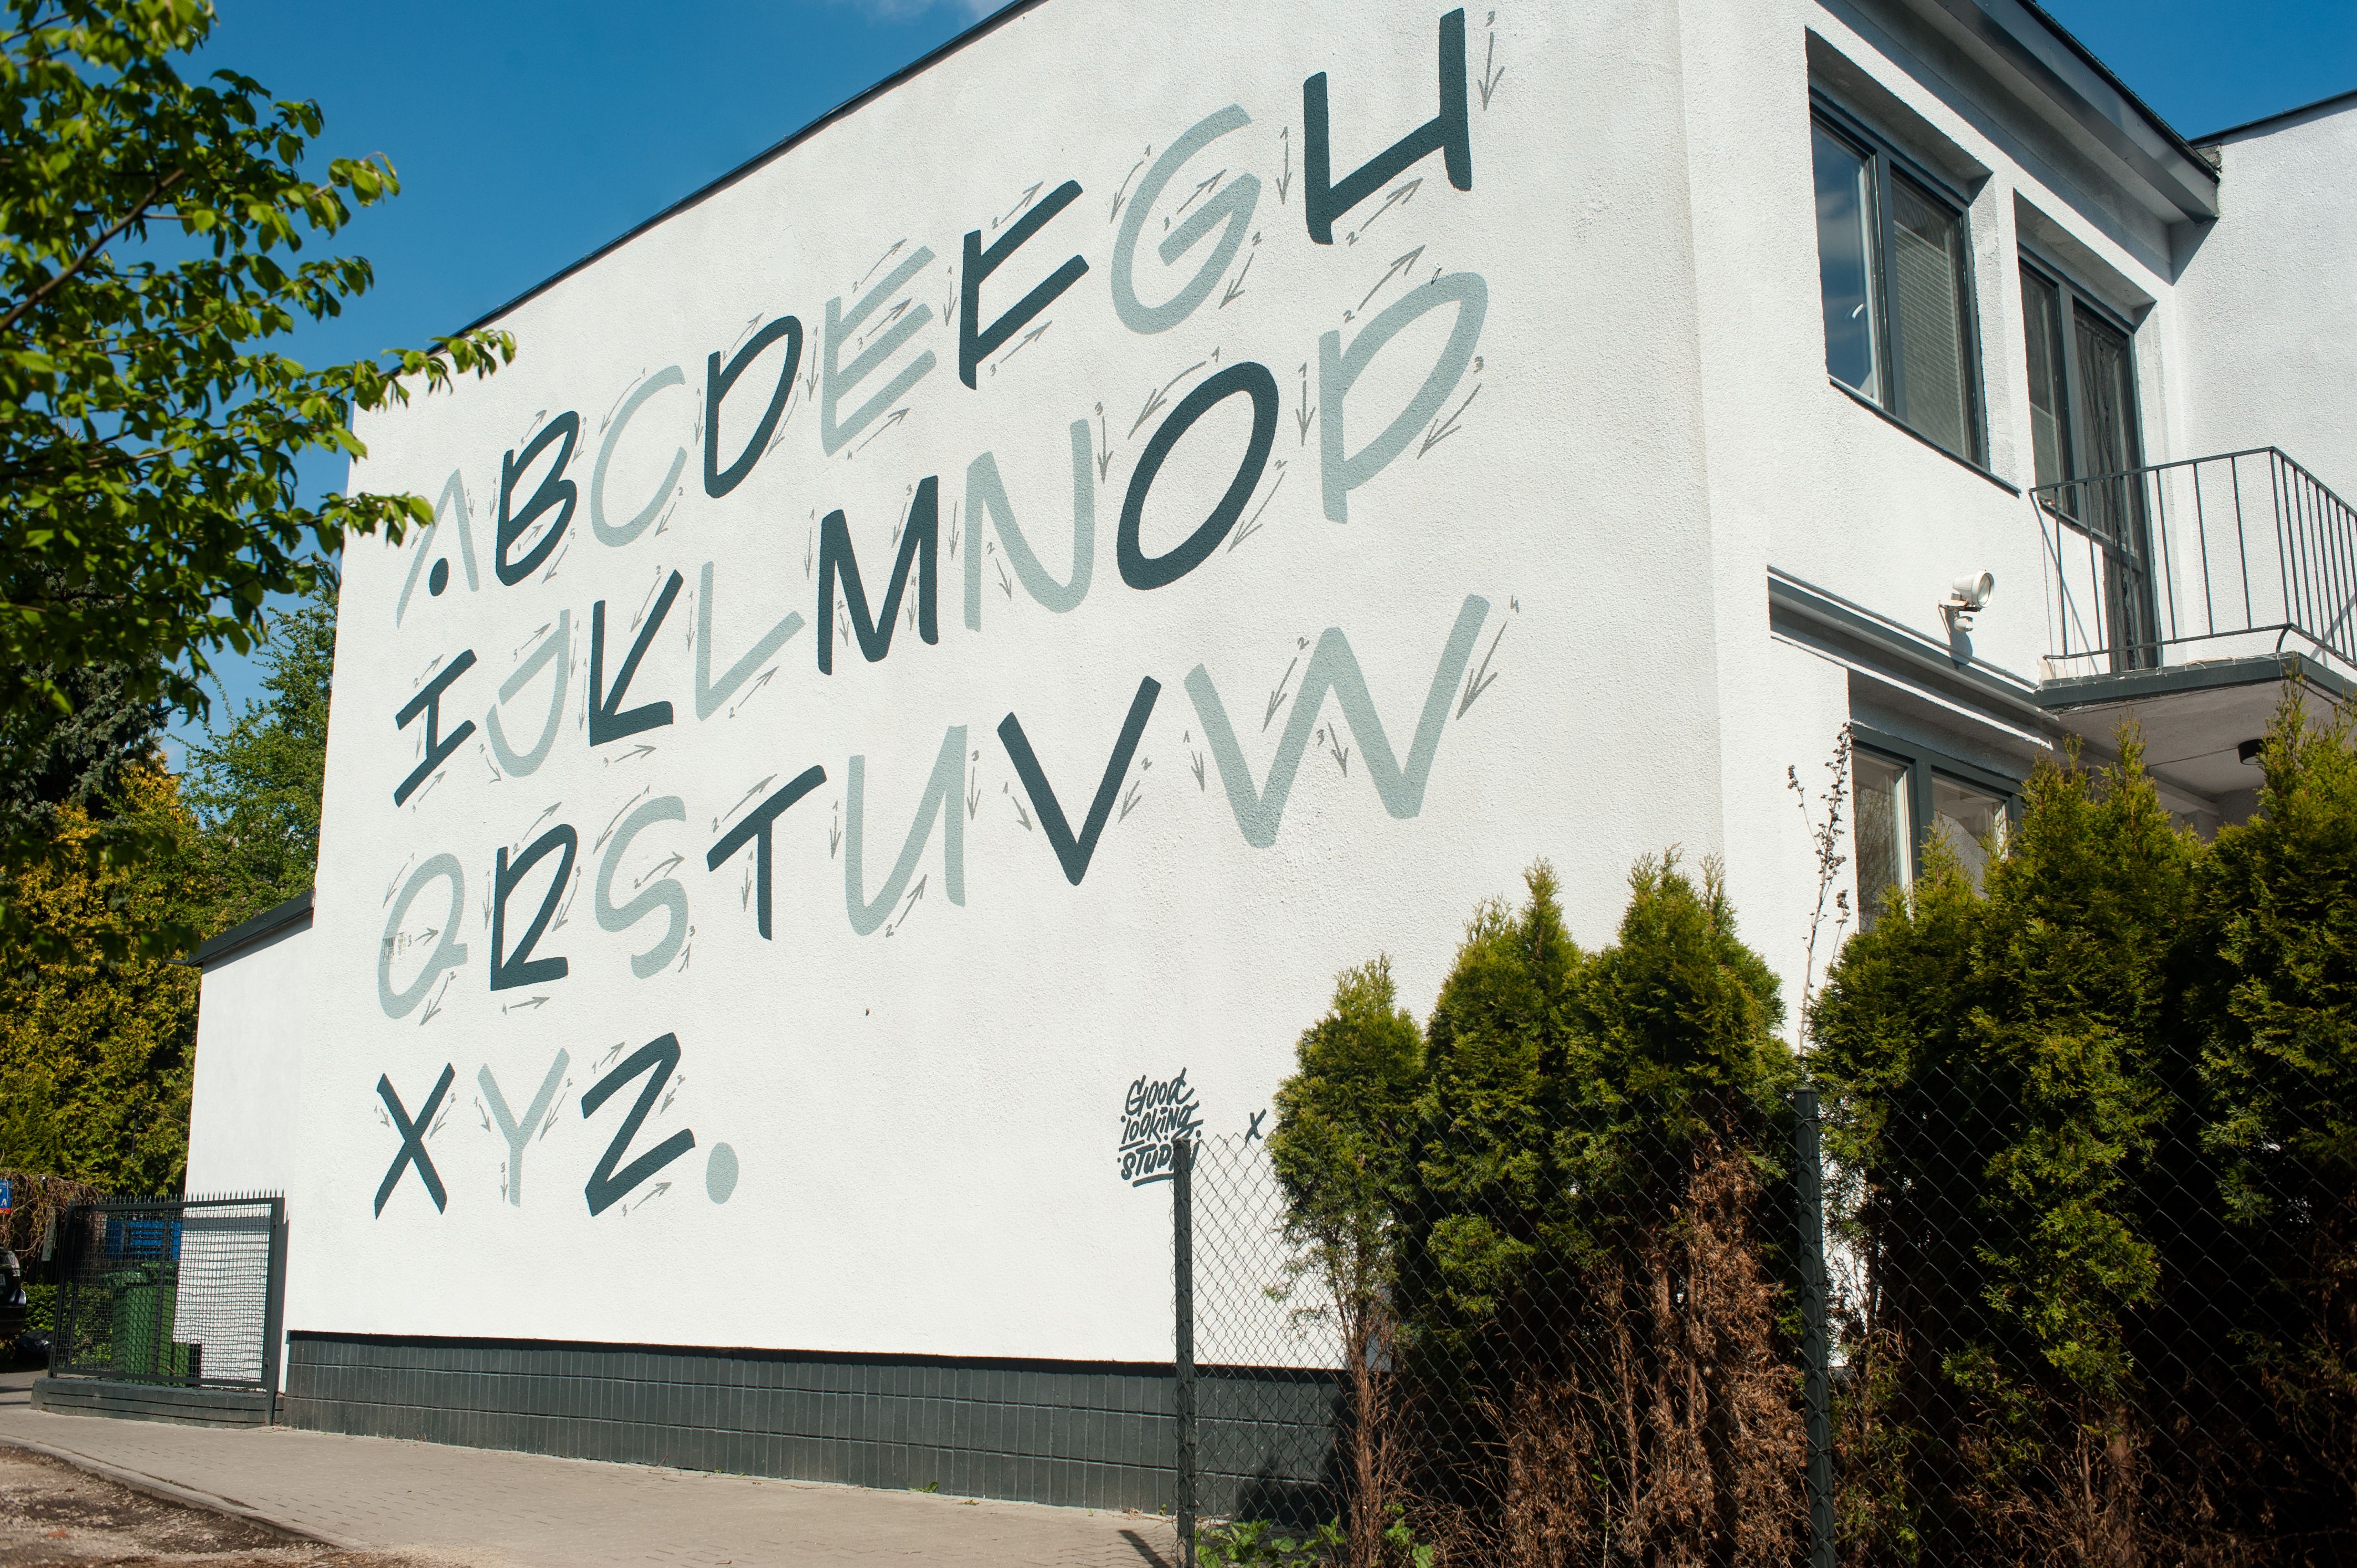 ABCDEFGH
IJKLMNOP
QRSTUVW
XYZ.
GOOD
LOOKING
STUDIO
X